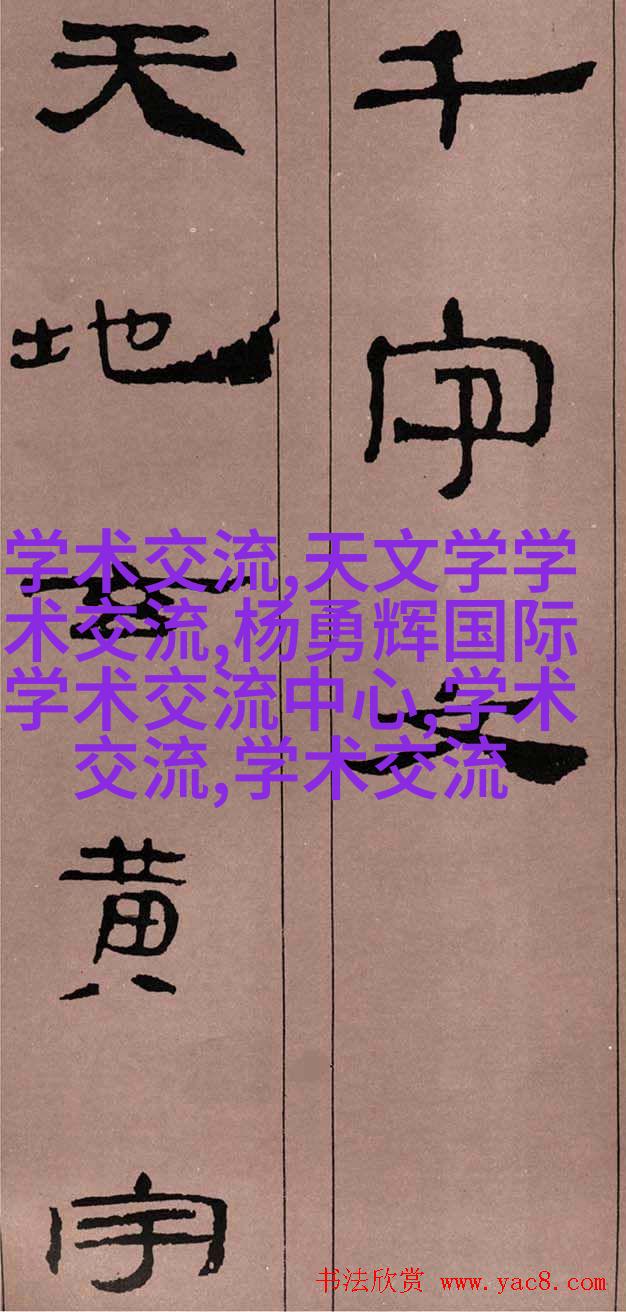 千字文
天地玄黄宇
学术交流,天文学学
术交流,杨勇辉国际
学术交流中心,学术
交流,学术交流
书法欣赏 www.yac8.com